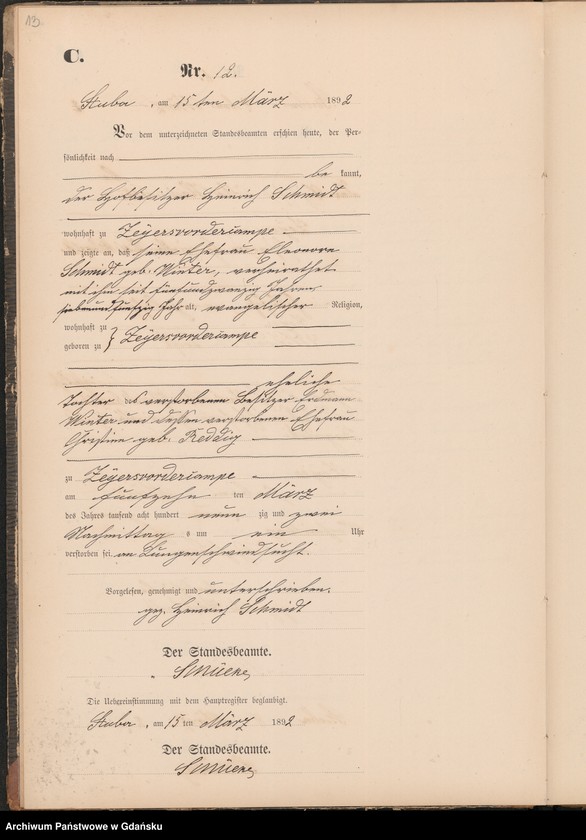 13
C.
Nr. 12.
Stuba, am 15 ten März 1892
Vor dem unterzeichneten Standesbeamten erschien heute, der Per-
sönlichkeit nach
be kannt,
der Hofbesitzer Heinrich Schmidt
wohnhaft zu Zeyersvordercampe
und zeigte an, daß seine Ehefrau Eleonora
Schmidt geb. Winter, verheirathet
mit ihm seit fünfundzwanzig Jahren
siebenundfünfzig Jahr alt, evangelischer Religion,
wohnhaft zu
geboren zu } Zeyersvordercampe
eheliche
Tochter des verstorbenen Besitzer Erdmann
Winter und dessen verstorbenen Ehefrau
Christine geb. Reddig
zu Zeyersvordercampe
am fünfzehn ten März
des Jahres tausend acht hundert neun zig und zwei
Nachmittag s um ein Uhr
verstorben sei an Lungenschwindsucht.
Vorgelesen, genehmigt und unterschrieben.
gez. Heinrich Schmidt
Der Standesbeamte.
Die Uebereinstimmung mit dem Hauptregister beglaubigt.
Stuba, am 15 ten März 1892
Der Standesbeamte.
Archiwum Państwowe w Gdańsku